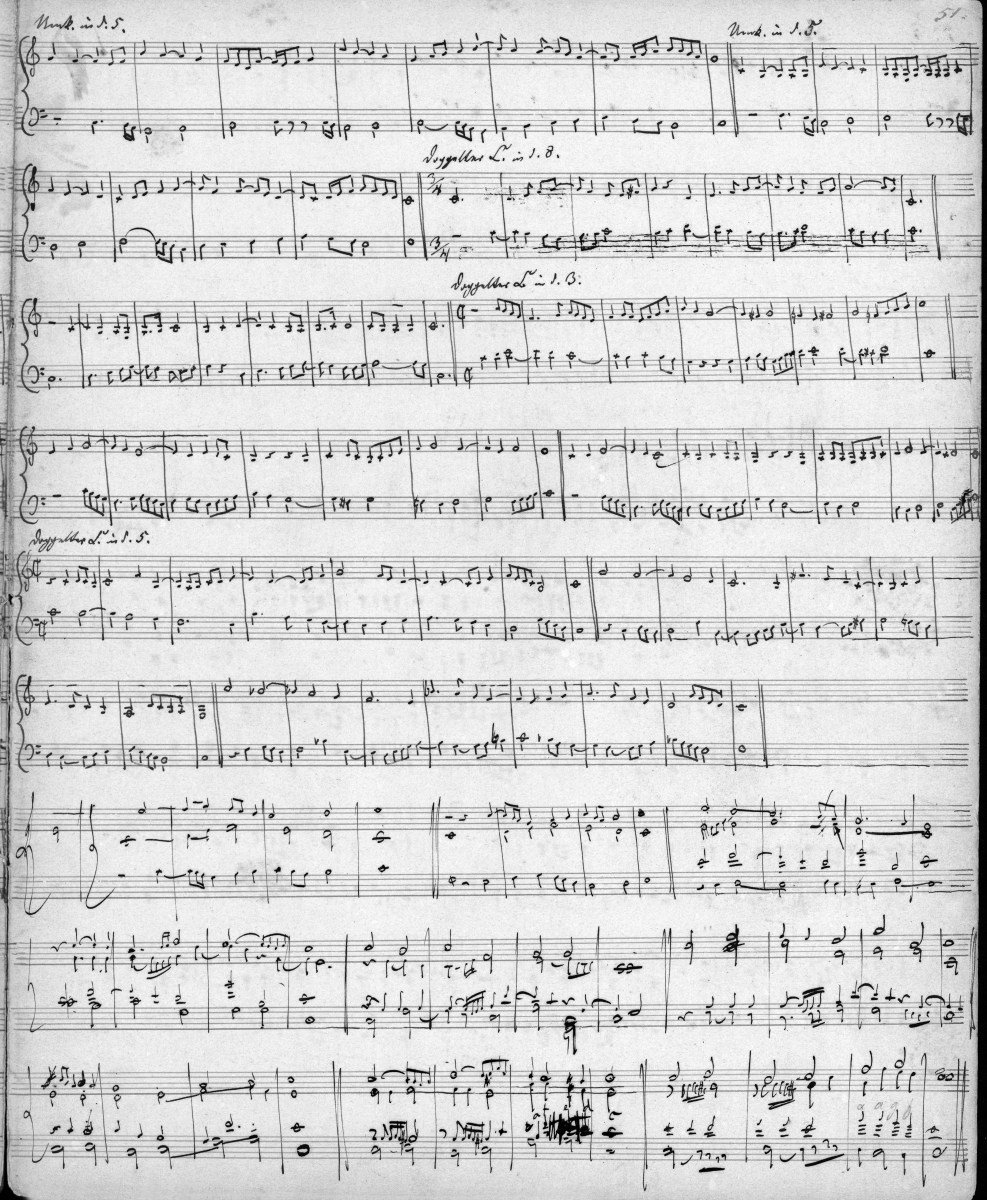 51.
Umk. in d. 5.
Umk. in d. 5.
Doppelter C. in d. 8.
Doppelter C. in d. 3.
Doppelter C. in d. 5.